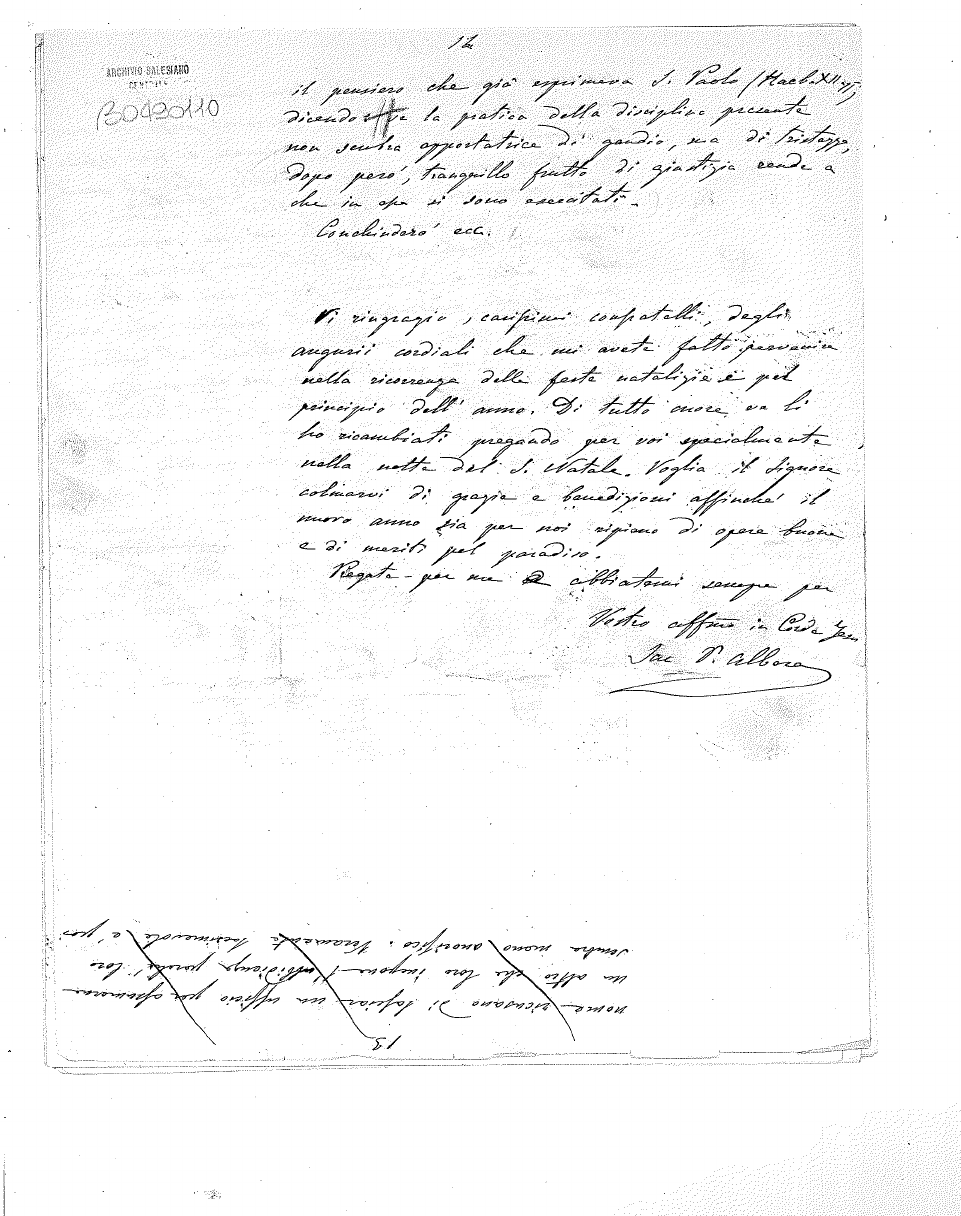 12
ARCHIVIO SALESIANO
CENTRALE
B0490110
il pensiero che già esprimeva S. Paolo (Haeb. XII
dicendo che la pratica della disciplina presente
non sembra apportatrice di gaudio, ma di tristezza,
dopo però, tranquillo frutto di giustizia rende a
che in essa si sono esercitati.
Conchiuderò ecc.
Vi ringrazio, carissimi confratelli, degli
augurii cordiali che mi avete fatto pervenire
nella ricorrenza delle feste natalizie e pel
principio dell'anno. Di tutto cuore ve li
ho ricambiati pregando per voi specialmente
nella notte del S. Natale. Voglia il Signore
colmarvi di grazie e benedizioni affinché il
nuovo anno sia per noi ripieno di opere buone
e di meriti pel paradiso.
Pregate per me abbiatemi sempre per
Vostro affmo in Corde Jesu
Sac P. Albera
13
nome ricusano di lasciar un ufficio per assumere
un altro che loro impone l'ubbidienza perché loro
sembra meno onorifico. Veramente è poi